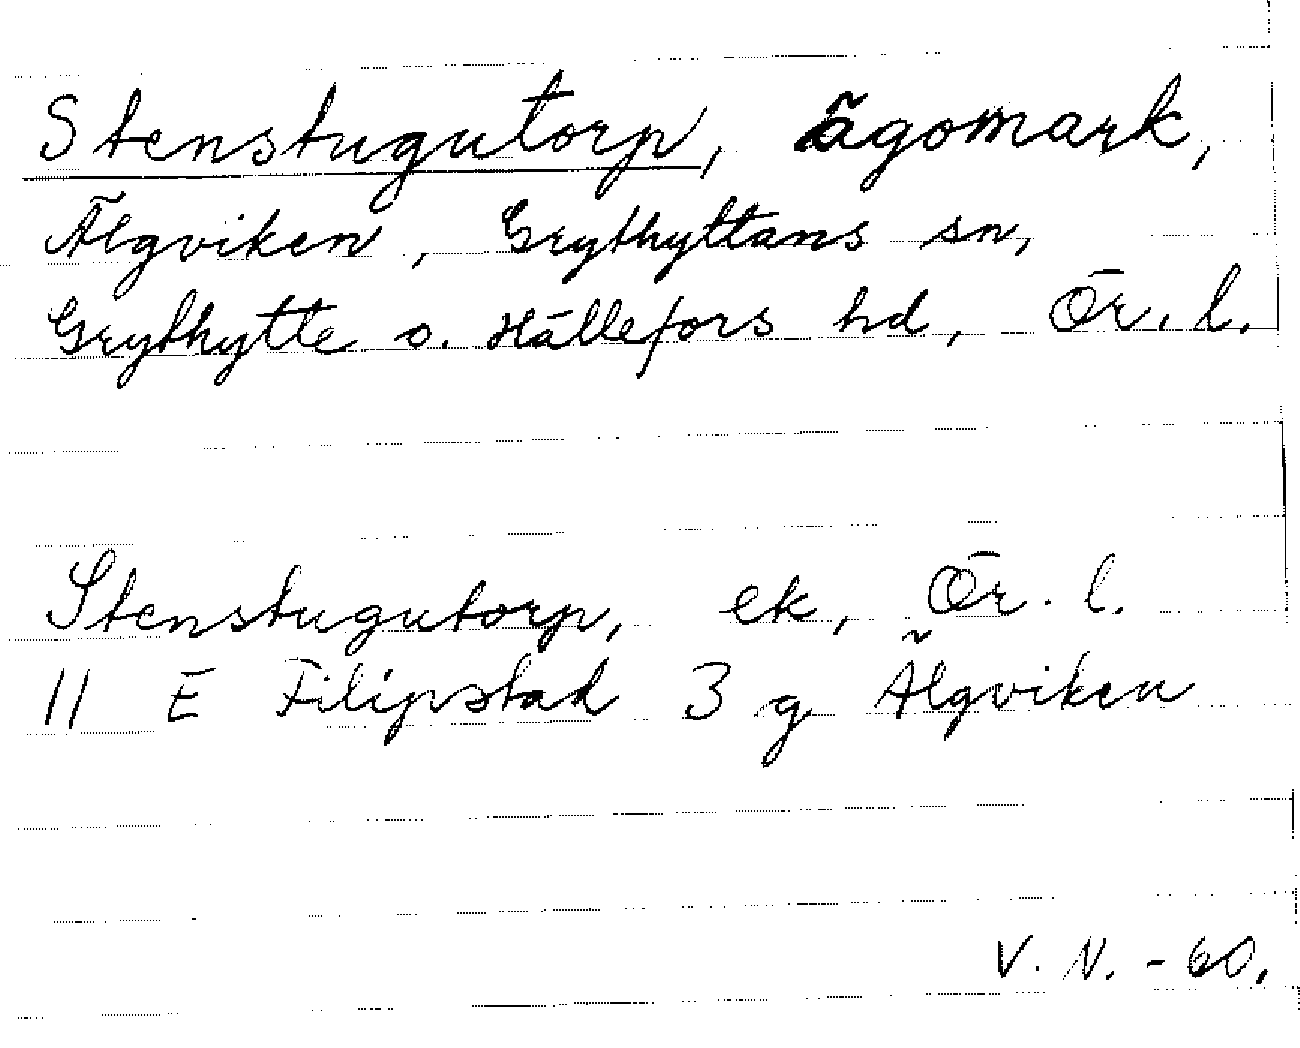 Stenstugutorp, ägomark,
Älgviken, Grythyttans sn,
Grythytte o. Hällefors hd, Ör. l.
Stenstugutorp, ek, Ör. l.
11 E Filipstad 3 g Älgviken
V. N. - 60.